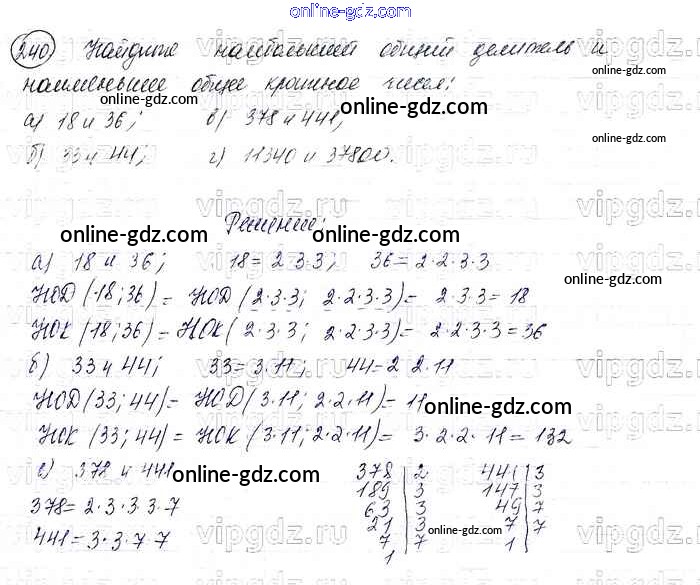 online-gdz.com
240 Найдите наибольший общий делитель и
наименьшее общее кратное чисел:
online-gdz.com
online-gdz.com
а) 18 и 36; в) 378 и 441;
online-gdz.com
б) 33 и 44; г) 11340 и 37800.
vipgdz.ru
Решение:
online-gdz.com
online-gdz.com
а) 18 и 36; 18=2·3·3; 36=2·2·3·3
online-gdz.com
НОД (18;36)= НОД (2·3·3; 2·2·3·3)= 2·3·3=18
НОК (18;36)= НОК (2·3·3; 2·2·3·3)= 2·2·3·3=36
б) 33 и 44; 33=3·11; 44=2·2·11
НОД (33;44)= НОД (3·11; 2·2·11)= 11
online-gdz.com
НОК (33;44)= НОК (3·11; 2·2·11)= 3·2·2·11=132
в) 378 и 441
online-gdz.com
378=2·3·3·3·7
441=3·3·7·7
378 | 2 441 | 3
189 | 3 147 | 3
63 | 3 49 | 7
21 | 3 7 | 7
7 | 7 1
1
online-gdz.com
vipgdz.ru